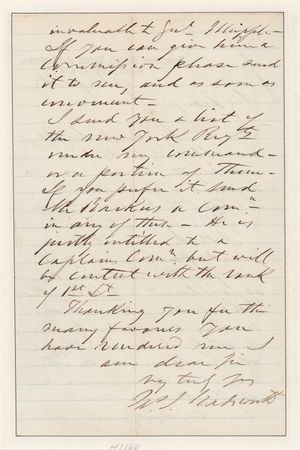 invaluable to Genl. Whipple –
If you can give him a
commission please send
it to me, and as soon as
convenient –
I send you a list of
the New York Regts
under my command –
or a portion of them –
If you prefer it send
Mr Backus a Comn
in any of them – He is
justly entitled to a
Captains Comn. but will
be content with the rank
of 1st Lt –
Thanking you for the
many favours you
have rendered me I
am dear Sir
very truly yrs
41160